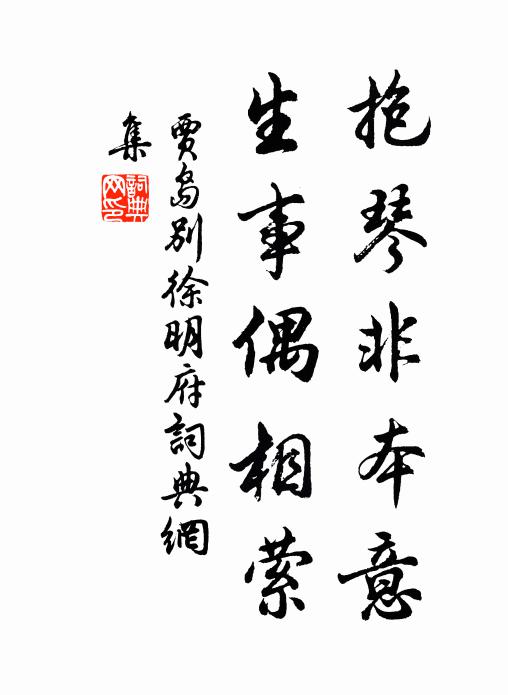 抱琴非本意
生事偶相萦
賈島別徐明府詞典網
集
詞典
网印